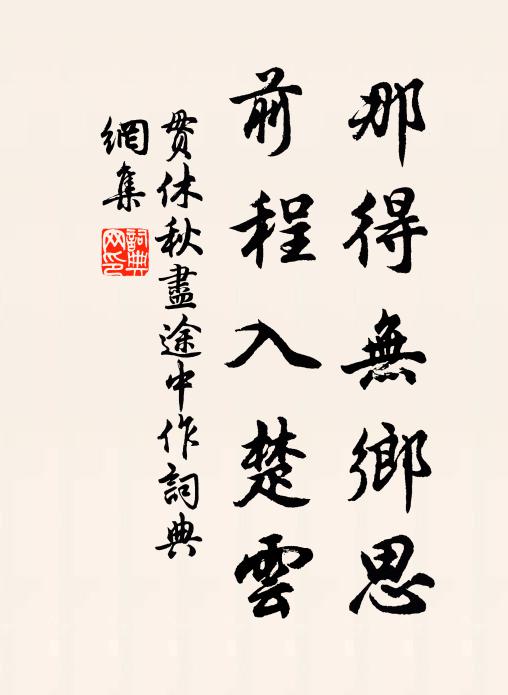 那得無鄉思
前程入楚雲
貫休秋盡途中作詞典
網集
詞典
网印